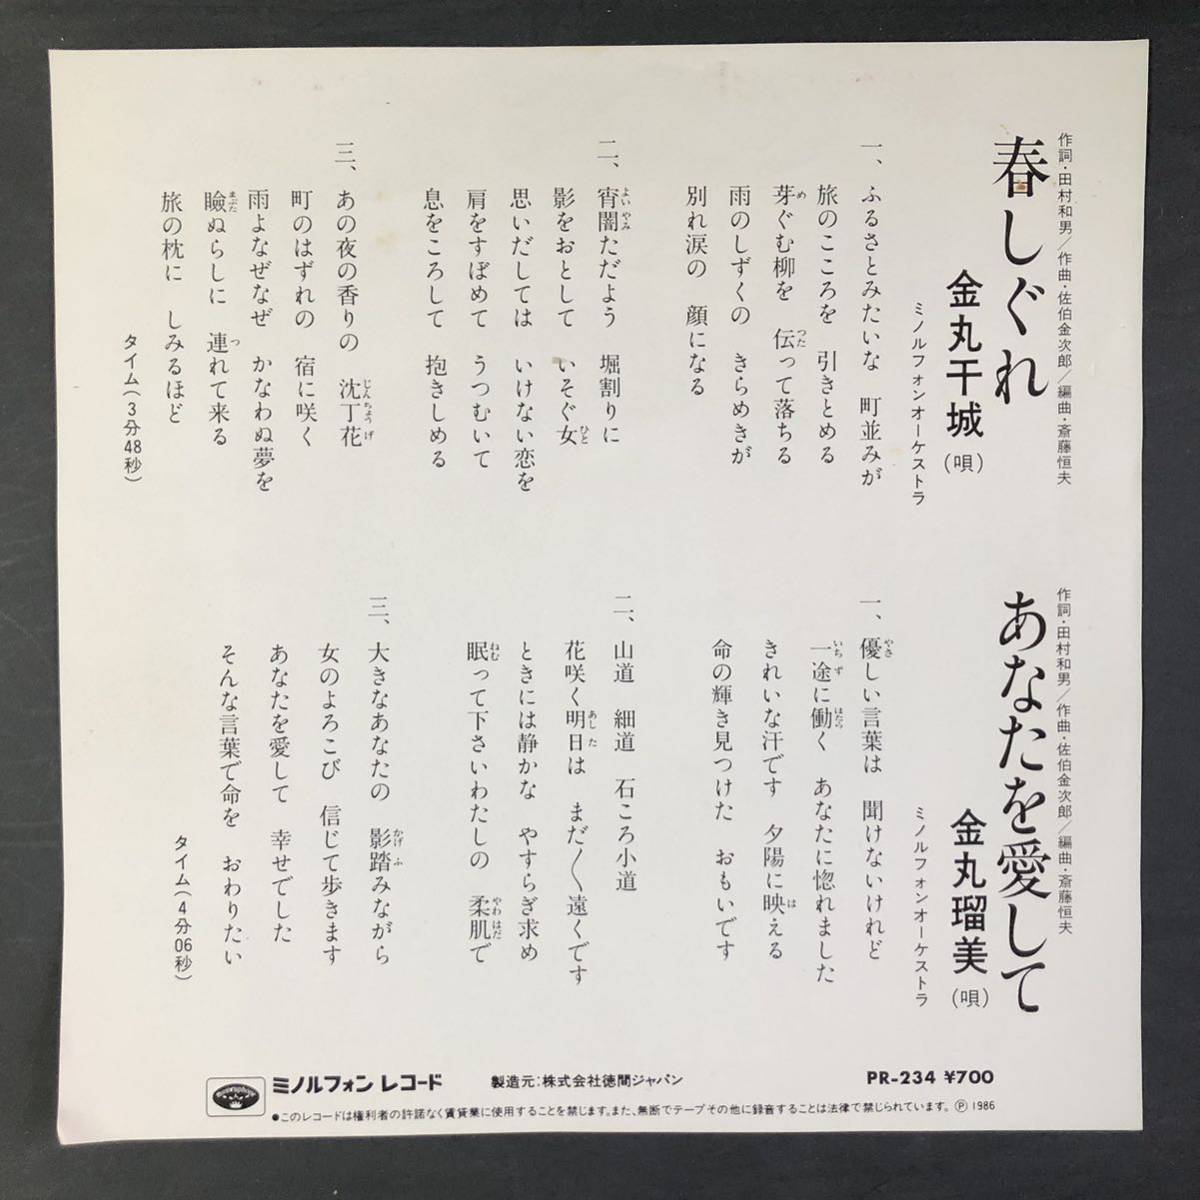 作詞・田村和男/作曲・佐伯金次郎/編曲・斎藤恒夫
春しぐれ
金丸干城(唄)
ミノルフォンオーケストラ
一、ふるさとみたいな 町並みが
旅のこころを 引きとめる
芽ぐむ柳を 伝って落ちる
雨のしずくの きらめきが
別れ涙の 顔になる
二、宵闇ただよう 堀割りに
影をおとして いそぐ女
思いだしては いけない恋を
肩をすぼめて うつむいて
息をころして 抱きしめる
三、あの夜の香りの 沈丁花
町のはずれの 宿に咲く
雨よなぜなぜ かなわぬ夢を
瞼ぬらしに 連れて来る
旅の枕に しみるほど
タイム(3分48秒)
作詞・田村和男/作曲・佐伯金次郎/編曲・斎藤恒夫
あなたを愛して
金丸瑠美(唄)
ミノルフォンオーケストラ
一、優しい言葉は 聞けないけれど
一途に働く あなたに惚れました
きれいな汗です 夕陽に映える
命の輝き見つけた おもいです
二、山道 細道 石ころ小道
花咲く明日は まだ〱遠くです
ときには静かな やすらぎ求め
眠って下さいわたしの 柔肌で
三、大きなあなたの 影踏みながら
女のよろこび 信じて歩きます
あなたを愛して 幸せでした
そんな言葉で命を おわりたい
タイム(4分06秒)
ミノルフォン レコード 製造元:株式会社徳間ジャパン PR-234 ¥700
●このレコードは権利者の許諾なく賃貸業に使用することを禁じます。また、無断でテープその他に録音することは法律で禁じられています。Ⓟ1986